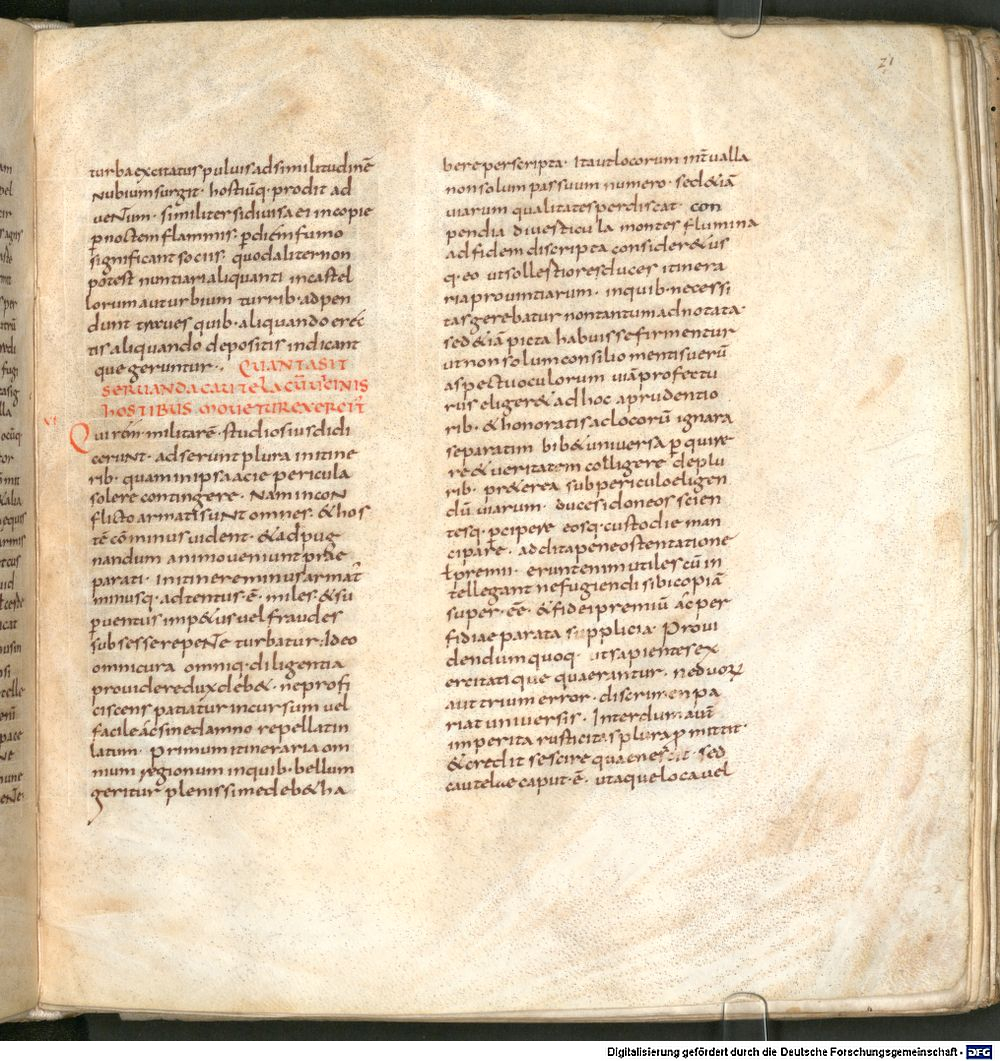 21
turba excitatus puluis ad similitudinē
nubium surgit · hostiūq· prodit ad
uentum · similiter si diuisae in copie
p̄ noctem flammis · p̄ diem fumo
significant sociis · quod aliter non
potest nuntiari aliquanti in castel
lorum aut urbium turrib· adpen
dunt trabes quib· aliquando erec
tis aliquando depositis indicant
que geruntur · QUANTA SIT
SERUANDA CAUTELA CŪ UICINIS
HOSTIBUS MOUETUR EXERCIT
XI
Qui rem militarē studiosius didi
cerunt · adserunt plura in itine
rib· quam in ipsa acie pericula
solere contingere · Nam in con
flicto armati sunt omnes · & hos
tē cōminus uident · & ad pug
nandum animo ueniunt prae
parati · in itinere minus armat
minusq· adtentus ē · miles · & su
p̄uentus imp&us uel fraudes
subsesse repente turbatur · Ideo
omni cura omniq· diligentia
prouidere dux deb& · ne profi
ciscens patiatur incursum uel
facile ac sine damno repellat in
latum · Primum itineraria om
nium regionum in quib· bellum
geritur plenissime deb& ha
bere perscripta · Ita ut locorum int̄ualla
non solum passuum numero · sed & iā
uiarum qualitates perdiscat · con
pendia diuesticula montes flumina
ad fidem discripta consider& us
q· eo ut sollestiores duces itinera
ria prouintiarum · in quib· necessi
tas gerebatur non tantum adnotata ·
sed & iā picta habuisse firmentur
ut non solum consilio mentis uerū
aspectu oculorum uiā profectu
rus eliger& ad hoc a prudentio
rib· & honoratis ac locorū ignara
separatim bib& uniuersa p̄quire
re & ueritatem colligere de plu
rib· pr&erea sub periculo eligen
dū uiarum · duces idoneos scien
tesq· p̄cipere eosq· custodie man
cipare · addita pene ostentatione
ł premii · erunt enim utiles cū in
tellegant ne fugiendi sibi copiā
super · eē · & fidei premiū ac per
fidiae parata supplicia · Proui
dendum quoq· ut sapientes ex
ercitati que quaerantur · ne duorꝝ
aut trium error · discrimen pa
riat uniuersis · Interdum aut̄
imperita rusticitas plura p̄mittit ·
& credit se scire quae nescit · sed
cautelae caput ē · ut aque loca uel
Digitalisierung gefördert durch die Deutsche Forschungsgemeinschaft - DFG